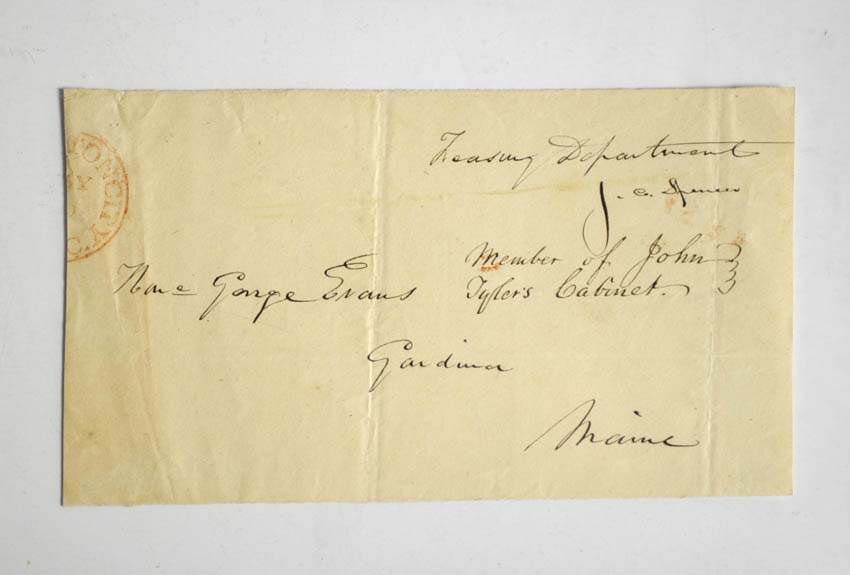 Treasury Department
J. C. Spencer
Member of John
Tyler's Cabinet.
Hon e George Evans
Gardiner
Maine
ON CITY